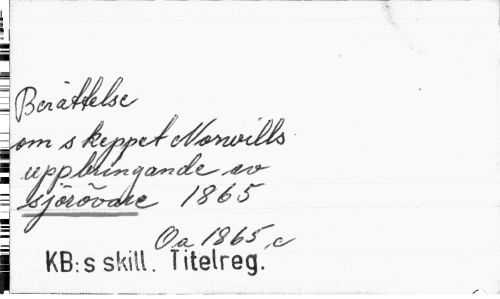 Berättelse
om skeppet Norwills
uppbringande av
sjörövare 1865
Oa 1865, c
KB:s skill. Titelreg.